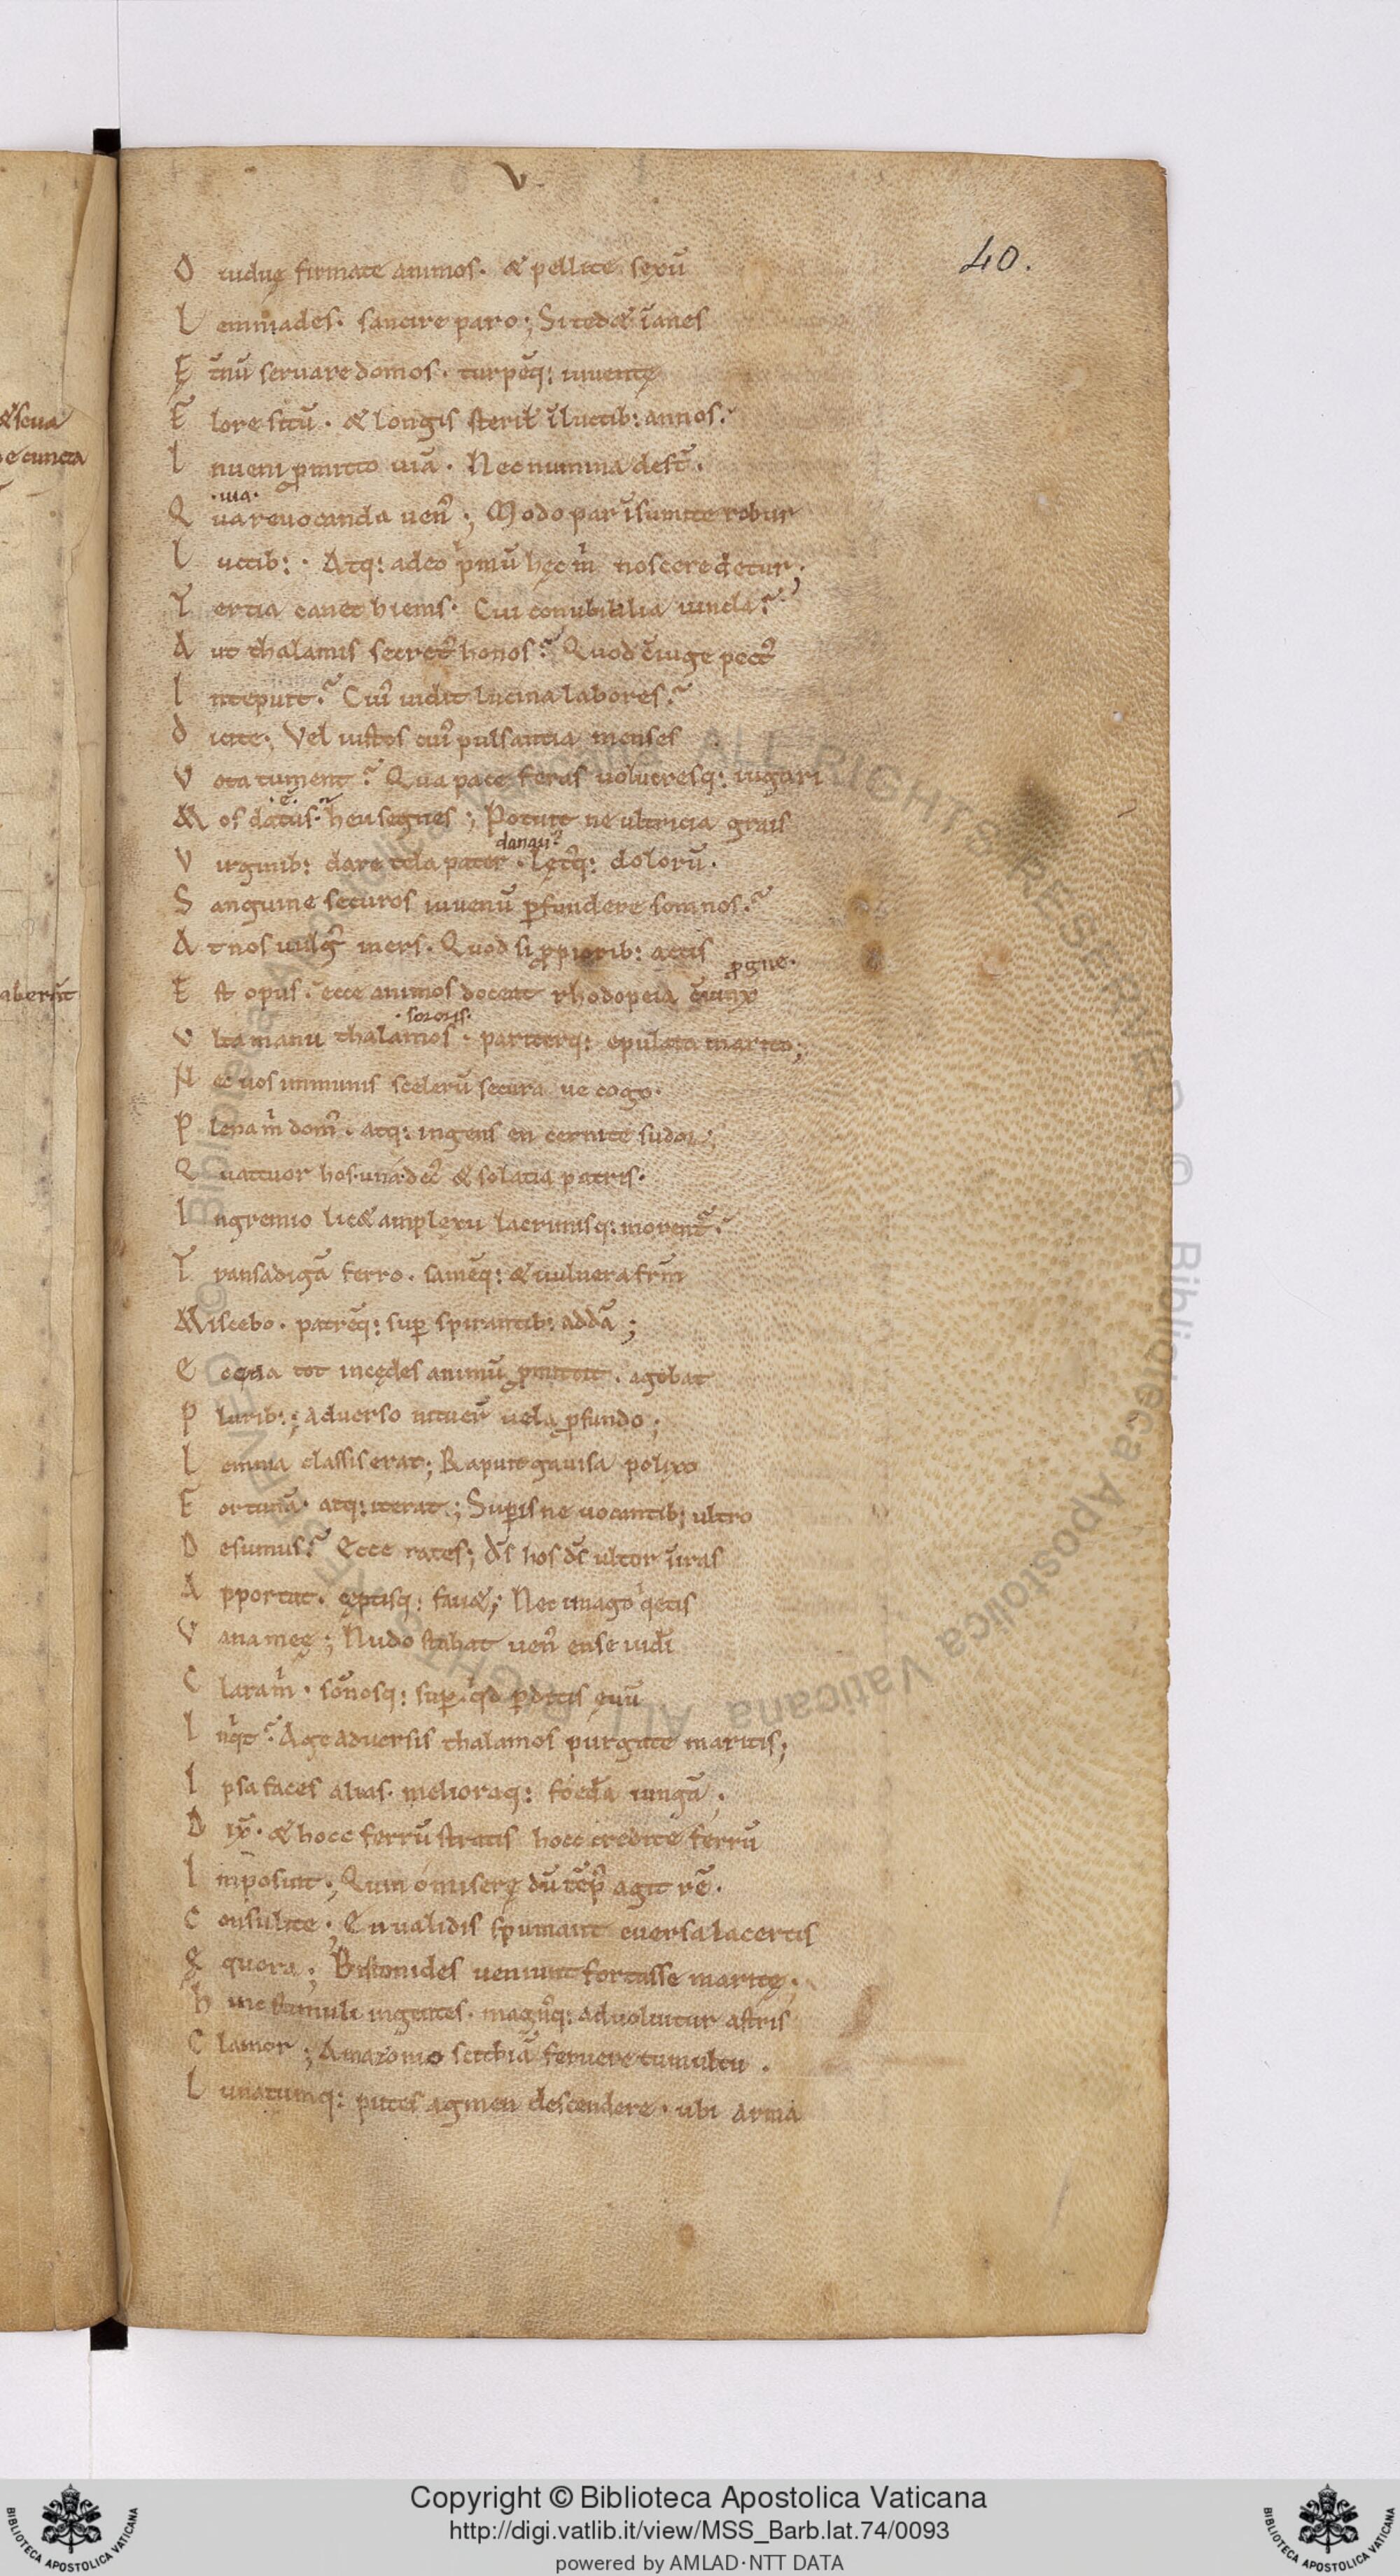 V
40.
O uiduę firmate animos. & pellite sexū
L emniades. sancire paro; Si tedæ īanes
Ę t̄nū seruare domos. turpēq: iuuentę
F lore sitū. & longis steril' ī luctib: annos.
I nueni ꝓmitto uiā. Nec numina desī̄.
.uia.
Q ua reuocanda uen᷒; Modo par īsumite robur
L uctib:. Atq: adeo pͥmū hęc m̄ noscere detur;
T ertia canet hiems. Cui conubialia uincla?
A ut thalamis secret᷒ honos? Quod c̄iuge pect᷒
I ntepuit? Cui᷒ uidit lucina labores?
D icite. Vel iustos cui᷒ pulsantia menses
V ota tument? Qua pace feras uolucresq: iugari
M os datus. heu segnes; Potuit ne ultricia grais
danaus
V irginib: dare tela pater. lęt᷒q: dolorū.
S anguine securos iuuenū ꝑfundere somnos?
A t nos uulg᷒ iners. Quod si ꝓpiorib: actis
ꝓgne.
E st opus. ecce animos doceat rhodopeia c̄iunx
.sororis.
V lta manu thalamos. pariterq: epulata marito;
N ec uos immunis scelerū secura ue cogo.
P lena m̄ dom᷒. atq: ingens en cernite sudor;
Q uattuor hos unā dec᷒ & solatia patris.
I n gremio lic& amplexu lacrimisq: morent᷒.
T ransadigā ferro. saniēq: & uulnera frm̄
M iscebo. patrēq: suꝑ spirantib: addā;
E cqua tot in cędes animū ꝓmittit. agebat
P lurib:; Aduerso nituer̄ uela ꝓfundo;
L emnia classis erat; Rapuit gauisa polixo
F ortunā. atq: iterat; Suꝑis ne uocantib; ultro
D esumus? Ecce rates; d̄s hos d̄s ultor ī iras
A pportat. cęptisq: fau&; Nec imago qͥetis
V ana meę; Nudo stabat uen᷒ ense uidi
C lara m̄. sōnosq: suꝑ. qͥd ꝑditis ęuū
I nqͥt? Age aduersis thalamos purgate maritis;
I psa faces alias. melioraq: foeda iungā;
D ix̄. & hocc ferrū stratis hocc credite ferrū
I mposuit; Quin ó miserę dū tēp᷒ agit rē.
C onsulite; En ualidis spumant euersa lacertis
Ę quora; Bistonides ueniunt fortasse maritę;
H inc stimuli ingentes. magn᷒q: aduoluitur astris
C lamor; Amazonio scithiā feruere tumultu.
L unatumq: putes agmen descendere. ubi arma
& seua
e cuncta
aberāt
Copyright © Biblioteca Apostolica Vaticana
http://digi.vatlib.it/view/MSS_Barb.lat.74/0093
powered by AMLAD·NTT DATA